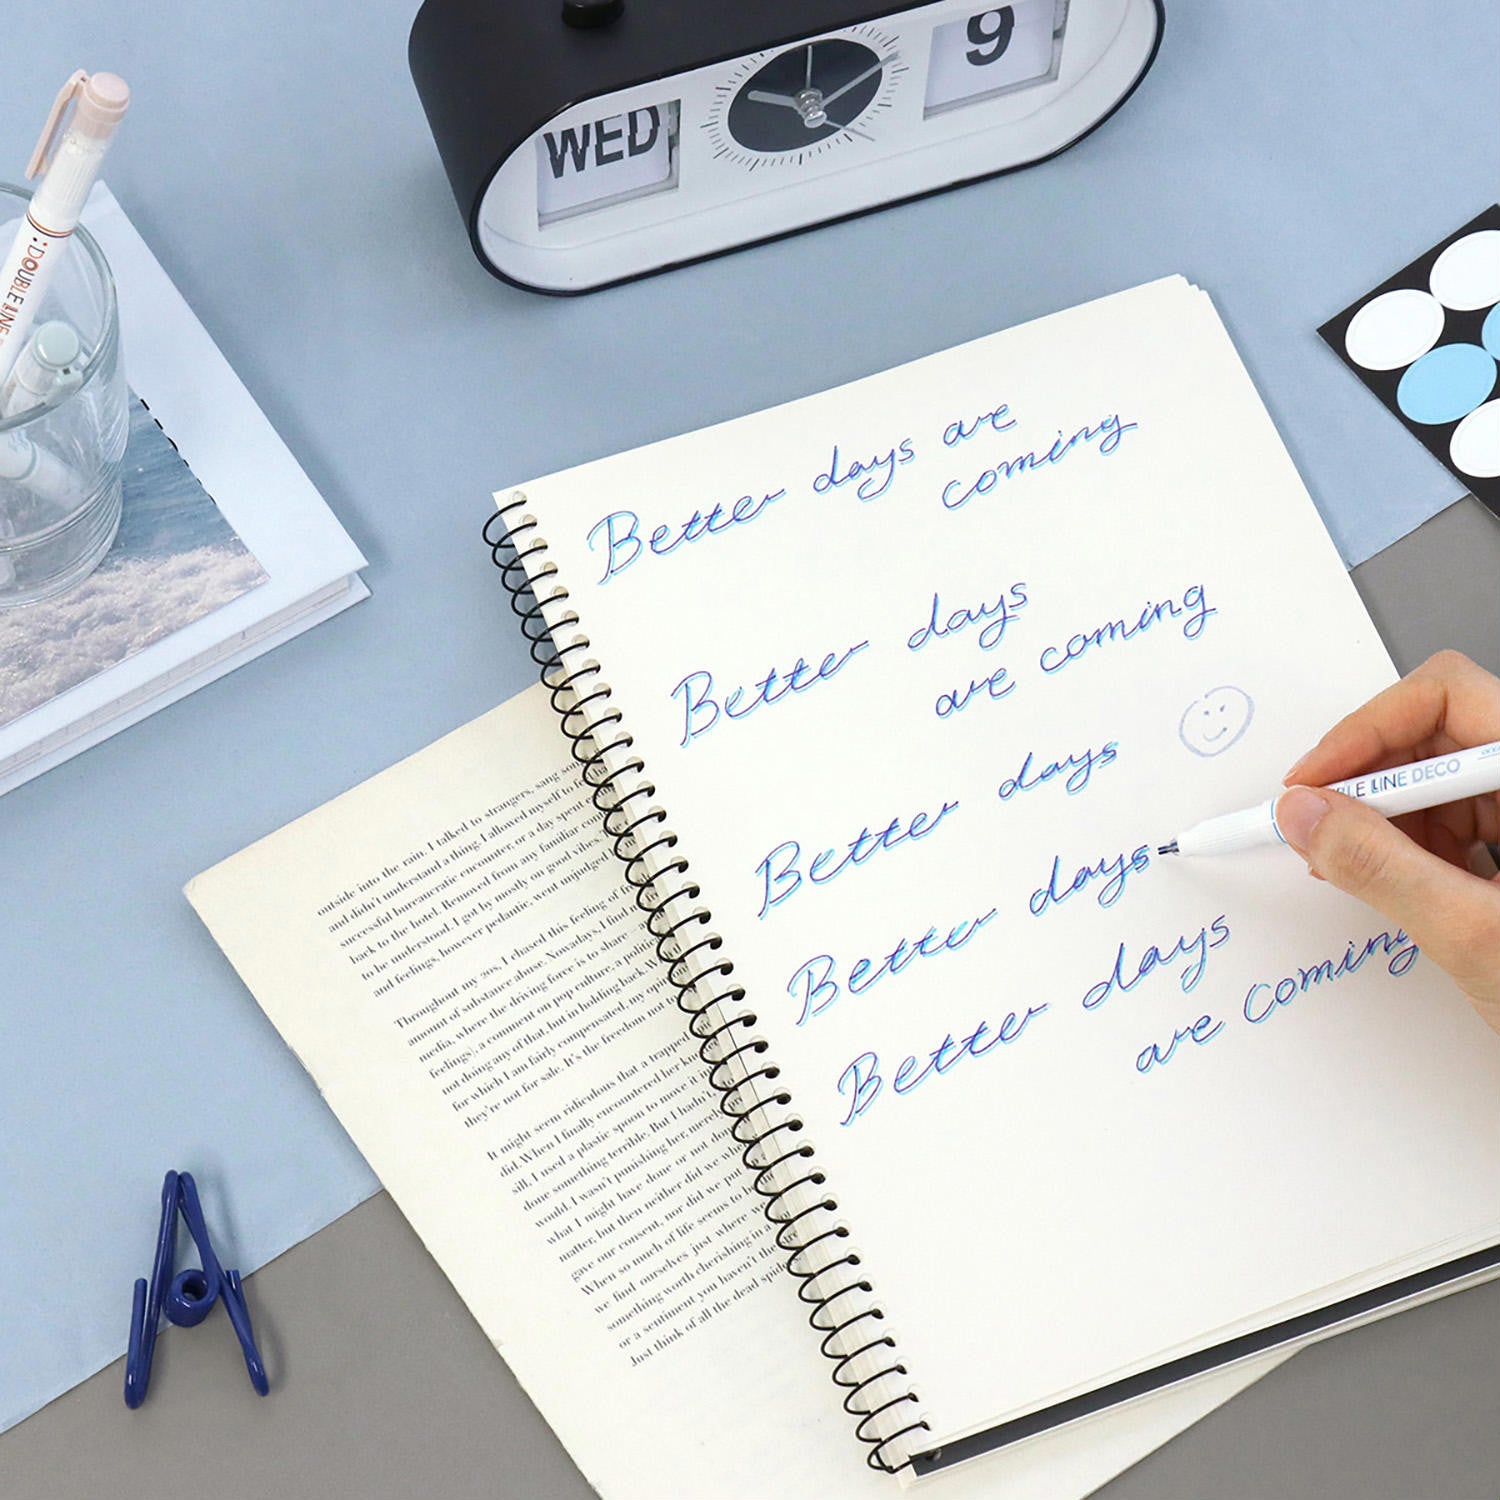 WED
9
:DOUBLE LINE
Better days are
coming
Better days
are coming
Better days
Better days
Better days
are coming
BLE LINE DECO
outside into the rain. I talked to strangers, sang
and didn't understand a thing. I allowed myself to feel
successful bureaucratic encounter, or a day spent
back to the hotel. Removed from any familiar
to be understood. I got by mostly on good vibes.
and feelings, however pedantic, went unjudged
Throughout my 20s, I chased this feeling of
amount of substance abuse. Nowadays, I find
media, where the driving force is to share
feelings), a comment on pop culture, a political
not doing any of that, but in holding back. W
for which I am fairly compensated, my opinion
they're not for sale. It's the freedom not to
It might seem ridiculous that a trapped
did. When I finally encountered her
sill, I used a plastic spoon to move it
done something terrible. But I hadn't,
would. I wasn't punishing her, merely
what I might have done or not done
matter, but then neither did we
gave our consent, nor did we put
When so much of life seems to
we find ourselves just where we
something worth cherishing in a
or a sentiment you haven't the
Just think of all the dead spiders